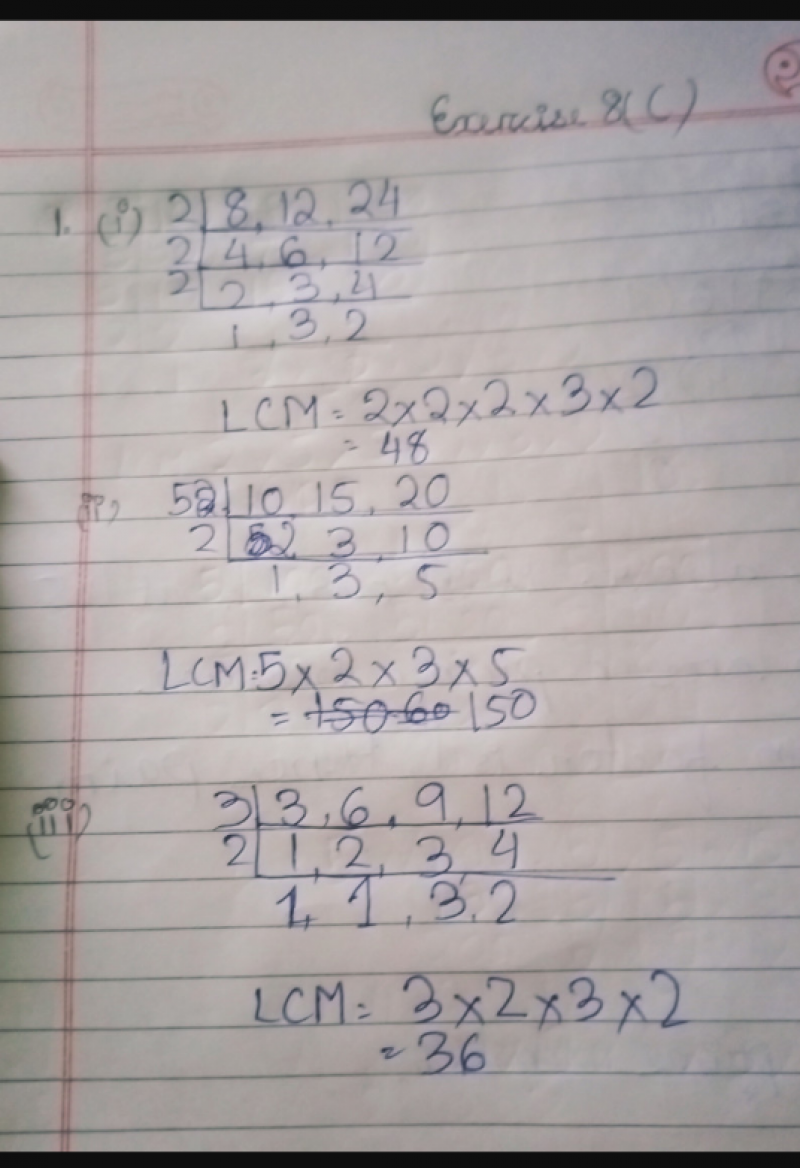 Exercise 8(C)
1. (i) 2 8, 12, 24
2 4, 6, 12
2 2, 3, 4
1, 3, 2
LCM = 2×2×2×3×2
= 48
(ii) 5 10, 15, 20
2 2, 3, 10
1, 3, 5
LCM: 5×2×3×5
= 150 60 150
(iii) 3 3, 6, 9, 12
2 1, 2, 3, 4
1, 1, 3, 2
LCM = 3×2×3×2
= 36